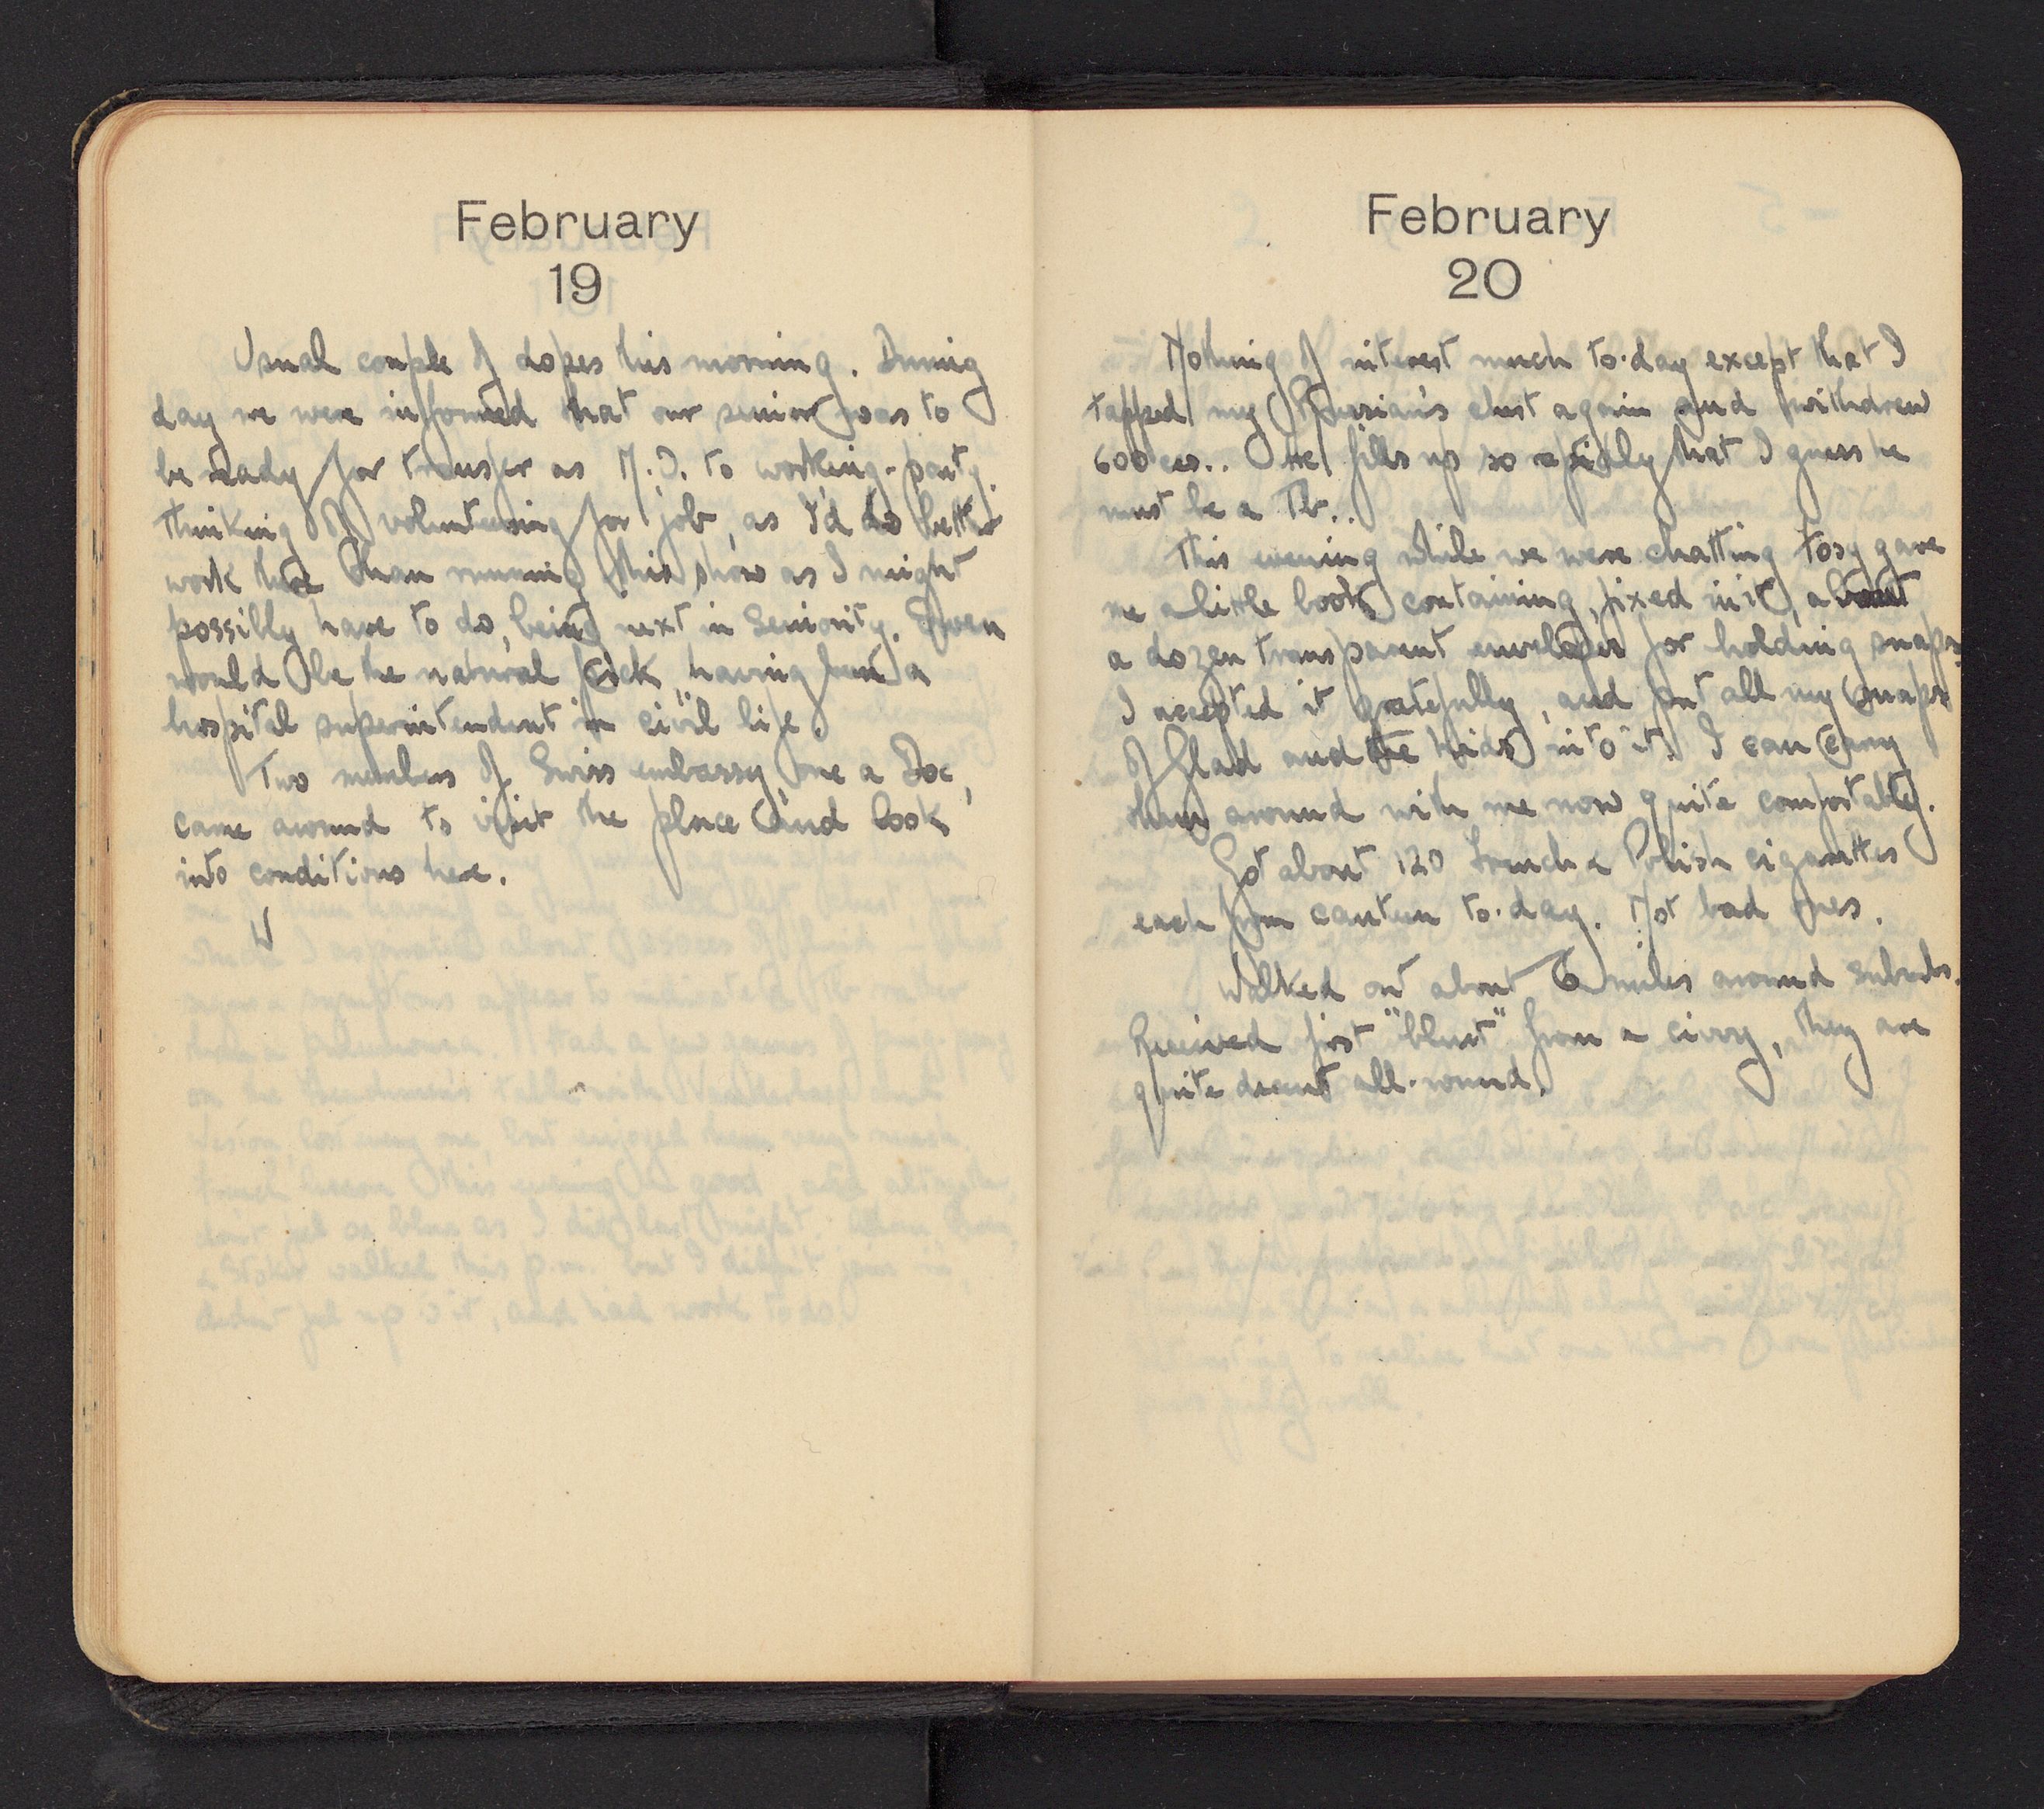 February
19
Usual couple of dopes this morning. During
day we were informed that our senior was to
be ready for transfer as M.O. to working-party.
Thinking of volunteering for job, as I'd do better
work there than running this show as I might
possibly have to do, being next in seniority. Owen
would be the natural pick, having been a
hospital superintendent in civil life.
Two members of Swiss embassy, one a Doc,
came around to visit the place and look
into conditions here.
February
20
Nothing of interest much to-day except that I
tapped my Russian's chest again and withdrew
600 ccs.. He fills up so rapidly that I guess he
must be a Tb..
This evening while we were chatting Tosy gave
me a little book containing, fixed in it, about
a dozen transparent envelopes for holding snaps.
I accepted it gratefully, and put all my snaps
of Glad and the kids into it. I can carry
them around with me now quite comfortably.
Got about 120 French & Polish cigarettes
each from canteen to-day. Not bad ones.
Walked out about 6 miles around suburbs.
Received first "blurt" from a civvy, they are
quite decent all-round.